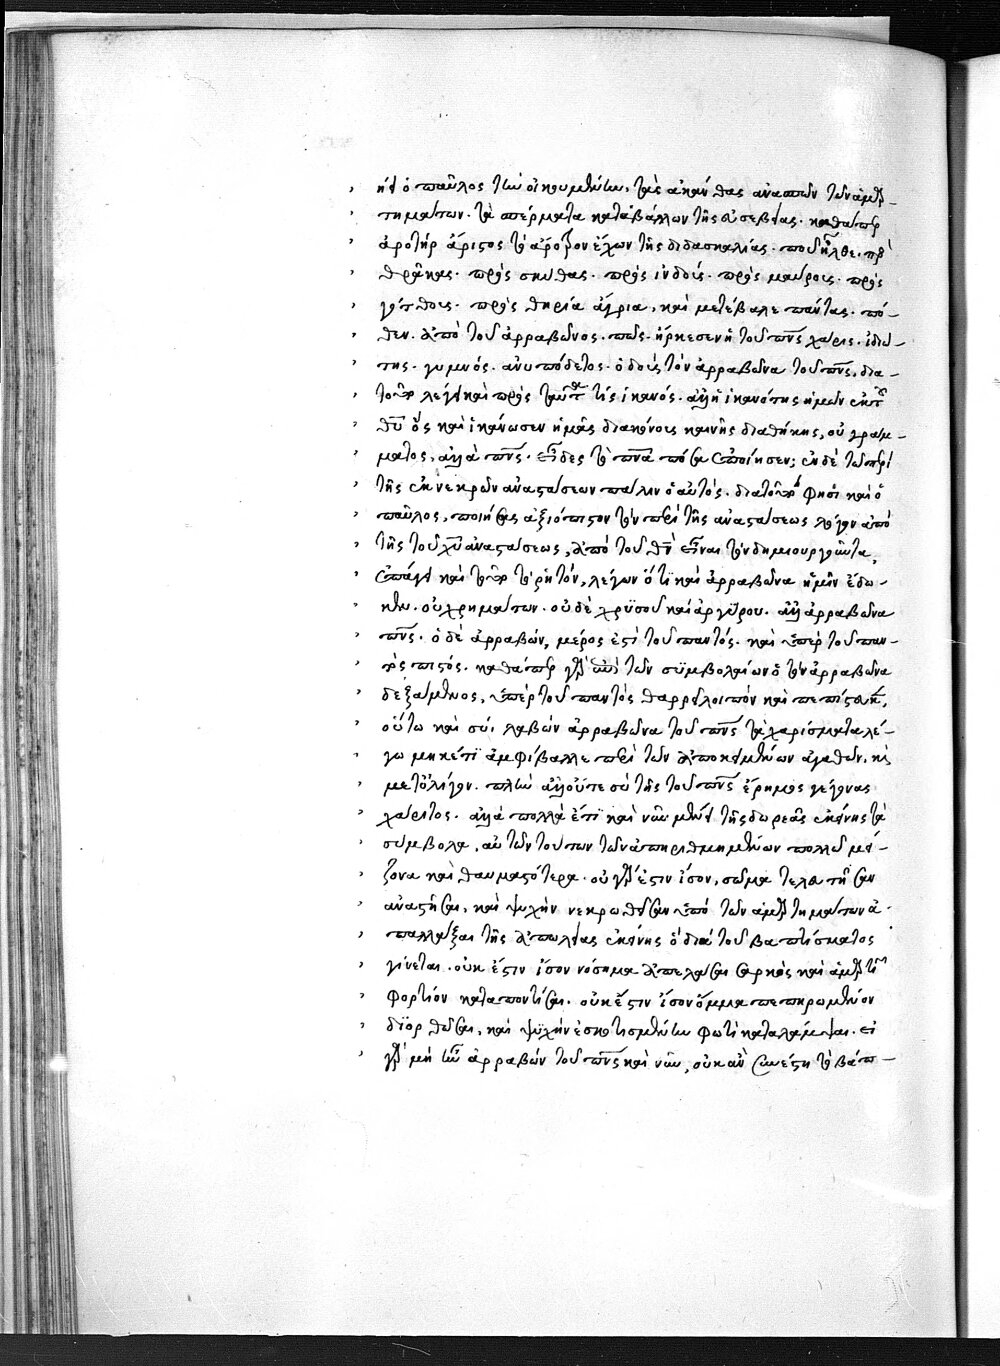 ᾔει ὁ παῦλος τὴν οἰκουμένην, τὰς ἀκάνθας ἀνασπῶν τῶν ἁμαρ-
τημάτων. τὰ σπέρματα καταβάλλων τῆς εὐσεβείας. καθάπερ
ἀροτὴρ ἄριστος τὸ ἄροτρον ἔχων τῆς διδασκαλίας. ποῦ ἦλθε. πρὸς
θρᾷκας. πρὸς σκύθας. πρὸς ἰνδούς. πρὸς μαύρους. πρὸς
γότθους. πρὸς θηρία ἄγρια, καὶ μετέβαλε πάντας. πό-
θεν. ἀπὸ τοῦ ἀρραβῶνος. πῶς. ἤρκεσεν ἡ τοῦ πνς χάρις. ἰδιώ-
της. γυμνός. ἀνυπόδετος. ὁ δοὺς τὸν ἀρραβῶνα τοῦ πνς. δια-
τοῦτο λέγει καὶ πρὸς ταῦτα τίς ἱκανός. ἀλλ' ἡ ἱκανότης ἡμῶν ἐκ τοῦ
θυ ὃς καὶ ἱκάνωσεν ἡμᾶς διακόνους καινῆς διαθήκης, οὐ γράμ-
ματος, ἀλλὰ πνς. εἶδες τὸ πνα πόσα ἐποίησεν; ἐν δὲ τῷ περὶ
τῆς ἐκ νεκρῶν ἀναστάσεων πάλιν ὁ αὐτός. διατοῦτό φησι καὶ ὁ
παῦλος, ποιήσας ἀξιόπιστον τὸν περὶ τῆς ἀναστάσεως λόγον ἀπὸ
τῆς τοῦ χυ ἀναστάσεως, ἀπὸ τοῦ θν εἶναι τὸν δημιουργοῦντα,
ἐπάγει καὶ τοῦτο τὸ ῥητόν, λέγων ὅτι καὶ ἀρραβῶνα ἡμῖν ἔδω-
κεν. οὐ χρημάτων. οὐδὲ χρυσοῦ καὶ ἀργύρου. ἀλλ' ἀρραβῶνα
πνς. ὁ δὲ ἀρραβών, μέρος ἐστὶ τοῦ παντός. καὶ ὑπὲρ τοῦ παν-
τὸς πιστός. καθάπερ γὰρ ἐπὶ τῶν συμβολαίων ὁ τὸν ἀρραβῶνα
δεξάμενος, ὑπὲρ τοῦ παντὸς θαρρεῖ λοιπὸν καὶ πεπίστευκεν,
οὕτω καὶ σύ, λαβὼν ἀρραβῶνα τοῦ πνς τὰ χαρίσματα λέ-
γω μηκέτι ἀμφίβαλλε περὶ τῶν ἀποκειμένων ἀγαθῶν. καὶ
μετ' ὀλίγον. πλὴν ἀλλ' οὔτε σὺ τῆς τοῦ πνς ἔρημος γέγονας
χάριτος. ἀλλὰ πολλὰ ἔτι καὶ νῦν μένει τῆς δωρεᾶς ἐκείνης τὰ
σύμβολα, αὐτῶν τούτων τῶν ἀπηριθμημένων πολλῷ μεί-
ζονα καὶ θαυμαστότερα. οὐ γάρ ἐστιν ἴσον, σῶμα τελευτῆσαν
ἀναστῆσαι, καὶ ψυχὴν νεκρωθεῖσαν ὑπὸ τῶν ἁμαρτημάτων ἀ-
παλλάξαι τῆς ἀπωλείας ἐκείνης ὃ διὰ τοῦ βαπτίσματος
γίνεται. οὐκ ἔστιν ἴσον νόσημα ἀπελάσαι σαρκὸς καὶ ἁμαρτιῶν
φορτίον καταποντίσαι. οὐκ ἔστιν ἴσον ὄμμα πεπηρωμένον
διορθῶσαι, καὶ ψυχὴν ἐσκοτισμένην φωτὶ καταλάμψαι. εἰ
γὰρ μὴ ἦν ἀρραβὼν τοῦ πνς καὶ νῦν, οὐκ ἂν συνέστη τὸ βάπ-